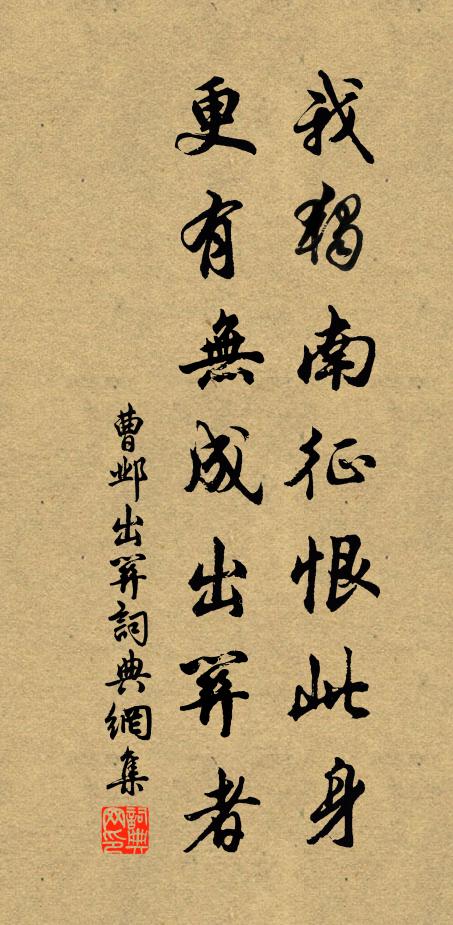 我獨南征恨此身
更有無成出關者
曹鄴出關詞典網集
詞典網印